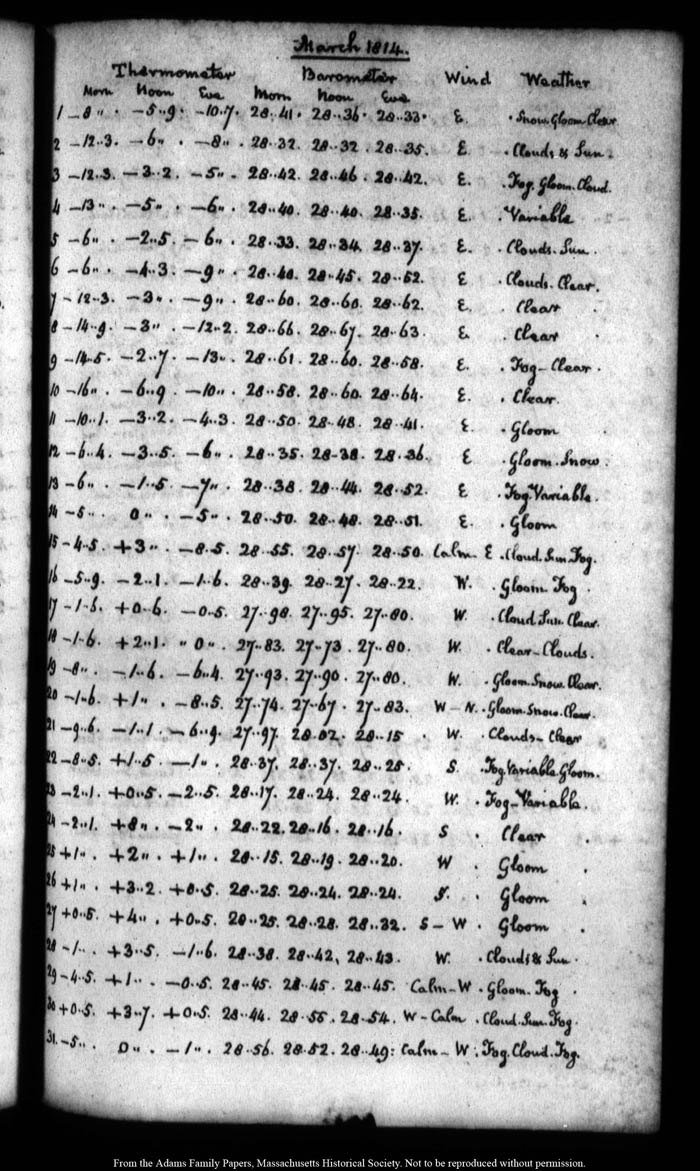 March 1814.
Thermometer Barometer Wind Weather
Morn Noon Eve Morn Noon Eve
1 -8 ,, . -5..9. -10..7. 28..41. 28..36. 28..33. E. . Snow. Gloom. Clear
2 -12..3. -6 ,, . -8 ,, . 28..32. 28..32. 28..35. E. . Clouds & Sun.
3 -12..3. -3..2. -5 ,, . 28..42. 28..46. 28..42. E. . Fog. Gloom. Cloud.
4 -13 ,, . -5 ,, . -6 ,, . 28..40. 28..40. 28..35. E. . Variable
5 -6 ,, . -2..5. -6 ,, . 28..33. 28..34. 28..37. E. . Clouds. Sun.
6 -6 ,, . -4..3. -9 ,, . 28..40. 28..45. 28..52. E. . Clouds. Clear.
7 -12..3. -3 ,, . -9 ,, . 28..60. 28..60. 28..62. E. . Clear .
8 -14..9. -3 ,, . -12..2. 28..66. 28..67. 28..63. E. . Clear .
9 -14..5. -2..7. -13 ,, . 28..61. 28..60. 28..58. E. . Fog-Clear.
10 -16 ,, . -6..9 -10 ,, . 28..58. 28..60. 28..64. E. . Clear.
11 -10..1. -3..2. -4..3. 28..50. 28..48. 28..41. E. . Gloom
12 -6..4. -3..5. -6 ,, . 28..35. 28..38. 28..36. E . Gloom. Snow.
13 -6 ,, . -1..5. -7 ,, . 28..38. 28..44. 28..52. E . Fog. Variable.
14 -5 ,, . 0 ,, . -5 ,, . 28..50. 28..48. 28..51. E. . Gloom
15 -4..5. +3 ,, . -8..5. 28..55. 28..57. 28..50. Calm E . Cloud. Sun. Fog.
16 -5..9. -2..1. -1..6. 28..39. 28..27. 28..22. W. . Gloom. Fog .
17 -1..6. +0..6. -0..5. 27..98. 27..95. 27..80. W. . Cloud. Sun. Clear.
18 -1..6. +2..1. ,, 0 ,, . 27..83. 27..73. 27..80. W. . Clear-Clouds.
19 -8 ,, . -1..6. -6..4. 27..93. 27..90. 27..80. W. . Gloom. Snow. Clear.
20 -1..6. +1 ,, . -8..5. 27..74. 27..67. 27..83. W-N. . Gloom. Snow. Clear.
21 -9..6. -1..1. -6..9. 27..97. 28..02. 28..15 . W. . Clouds-Clear
22 -8..5. +1..5 -1 ,, . 28..37. 28..37. 28..25. S. . Fog. Variable. Gloom.
23 -2..1. +0..5. -2..5. 28..17. 28..24. 28..24. W. . Fog-Variable.
24 -2..1. +8 ,, . -2 ,, . 28..22. 28..16. 28..16. S . Clear .
25 +1 ,, . +2 ,, . +1 ,, . 28..15. 28..19. 28..20. W . Gloom .
26 +1 ,, . +3..2. +0..5. 28..25. 28..24. 28..24. S. . Gloom .
27 +0..5. +4 ,, . +0..5. 28..25. 28..28. 28..32. S-W . Gloom .
28 -1 ,, . +3..5. -1..6. 28..38. 28..42, 28..43. W. . Clouds & Sun.
29 -4..5. +1 ,, . -0..5. 28..45. 28..45. 28..45. Calm-W . Gloom. Fog .
30 +0..5. +3..7. +0..5. 28..44. 28..55. 28..54. W-Calm . Cloud. Sun. Fog.
31. -5 ,, . 0 ,, . -1 ,, . 28..56. 28..52. 28..49: Calm-W . Fog. Cloud. Fog.
From the Adams Family Papers, Massachusetts Historical Society. Not to be reproduced without permission.